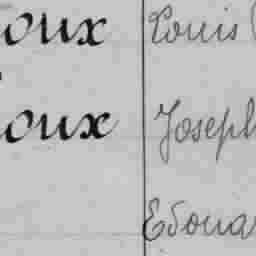 oux Louis
oux Joseph
Edoua